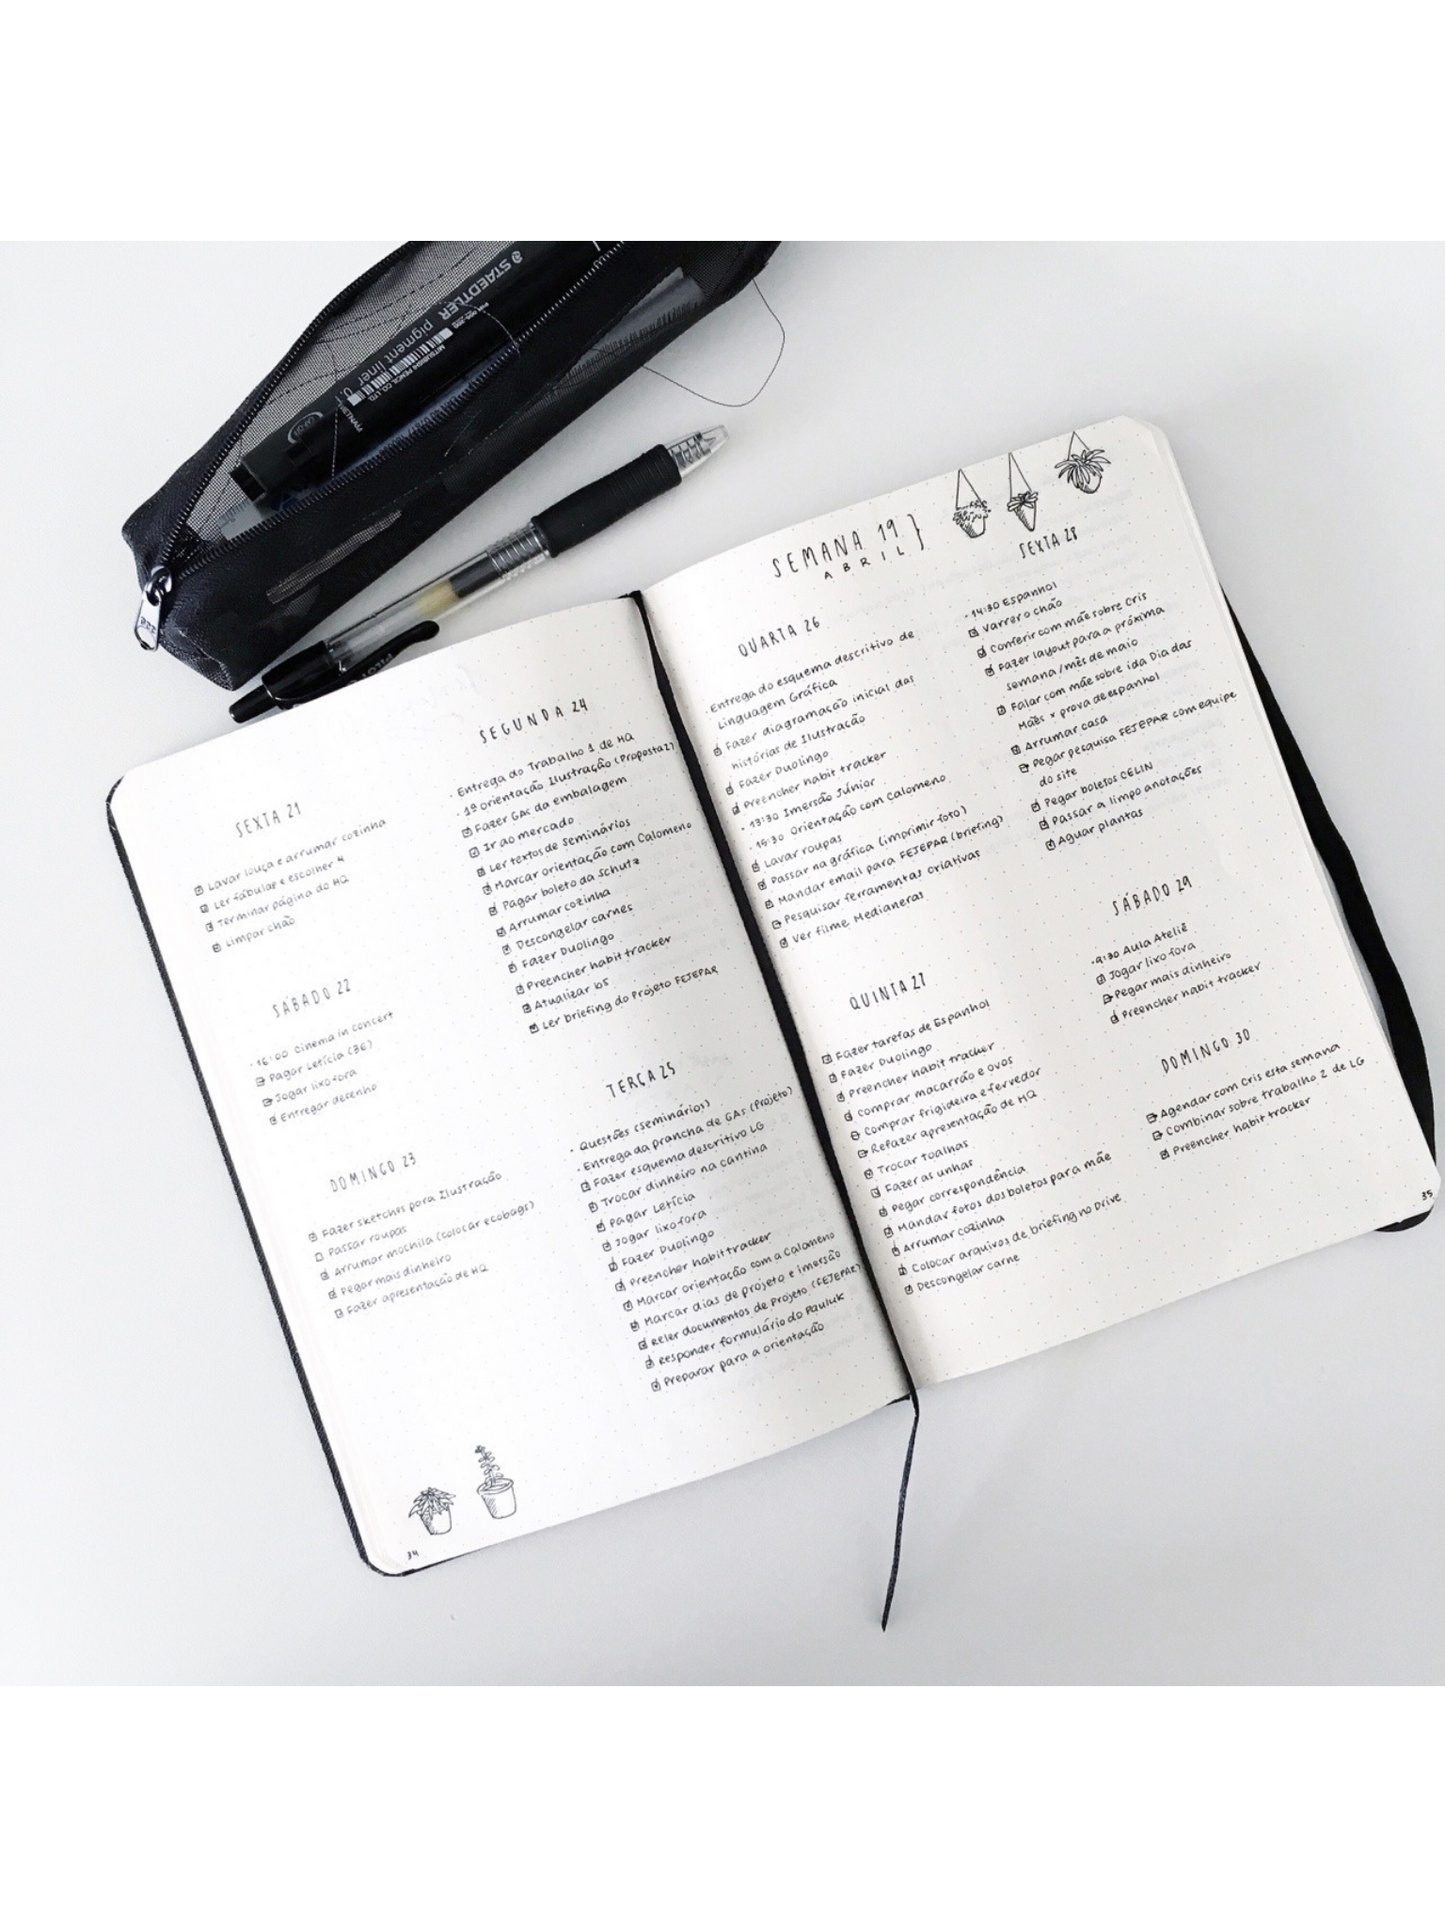 STAEDTLER
pigment liner 0.1
MITSUBISHI PENCIL CO. LTD.
PILOT
SEXTA 21
Lavar louça e arrumar cozinha
Ler fábulas e escolher 4
Terminar página do HQ
Limpar chão
SÁBADO 22
• 16:00 Cinema in concert
Pagar Letícia (36)
Jogar lixo fora
Entregar desenho
DOMINGO 23
Fazer sketches para Ilustração
Passar roupas
Arrumar mochila (colocar ecobags)
Pegar mais dinheiro
Fazer apresentação de HQ
34
SEGUNDA 24
• Entrega do Trabalho 1 de HQ
• 1ª orientação Ilustração (Proposta 2)
Fazer GAs da embalagem
Ir ao mercado
Ler textos de Seminários
Marcar orientação com Calomeno
Pagar boleto da Schutz
Arrumar cozinha
Descongelar carnes
Fazer Duolingo
Preencher habit tracker
Atualizar
Ler briefing do Projeto FEJEPAR
TERÇA 25
• Questões (seminários)
• Entrega da prancha de GAs (Projeto)
Fazer esquema descritivo LG
Trocar dinheiro na cantina
Pagar Letícia
Jogar lixo fora
Fazer Duolingo
Preencher habit tracker
Marcar orientação com a Calomeno
Marcar dias de projeto e imersão
Reler documentos de Projeto (FEJEPAR)
Responder formulário do Pauluk
Preparar para a orientação
SEMANA 19 }
ABRIL
QUARTA 26
• Entrega do esquema descritivo de
Linguagem Gráfica
Fazer diagramação inicial das
histórias de Ilustração
Fazer Duolingo
Preencher habit tracker
• 13:30 Imersão Júnior
• 15:30 Orientação com Calomeno
Lavar roupas
Passar na gráfica (imprimir foto)
Mandar email para FEJEPAR (briefing)
Pesquisar ferramentas criativas
Ver filme Medianeras
QUINTA 27
Fazer tarefas de Espanhol
Fazer Duolingo
Preencher habit tracker
Comprar macarrão e ovos
Comprar frigideira e fervedor
Refazer apresentação de HQ
Trocar toalhas
Fazer as unhas
Pegar correspondência
Mandar fotos dos boletos para mãe
Arrumar cozinha
Colocar arquivos de briefing no Drive
Descongelar carne
SEXTA 28
• 14:30 Espanhol
Varrer o chão
Conferir com mãe sobre Cris
Fazer layout para a próxima
semana/mês de maio
Falar com mãe sobre ida Dia das
Mães x prova de espanhol
Arrumar casa
Pegar pesquisa FEJEPAR com equipe
do site
Pegar boletos CELIN
Passar a limpo anotações
Aguar plantas
SÁBADO 29
• 9:30 Aula Ateliê
Jogar lixo fora
Pegar mais dinheiro
Preencher habit tracker
DOMINGO 30
Agendar com Cris esta semana
Combinar sobre trabalho 2 de LG
Preencher habit tracker
35